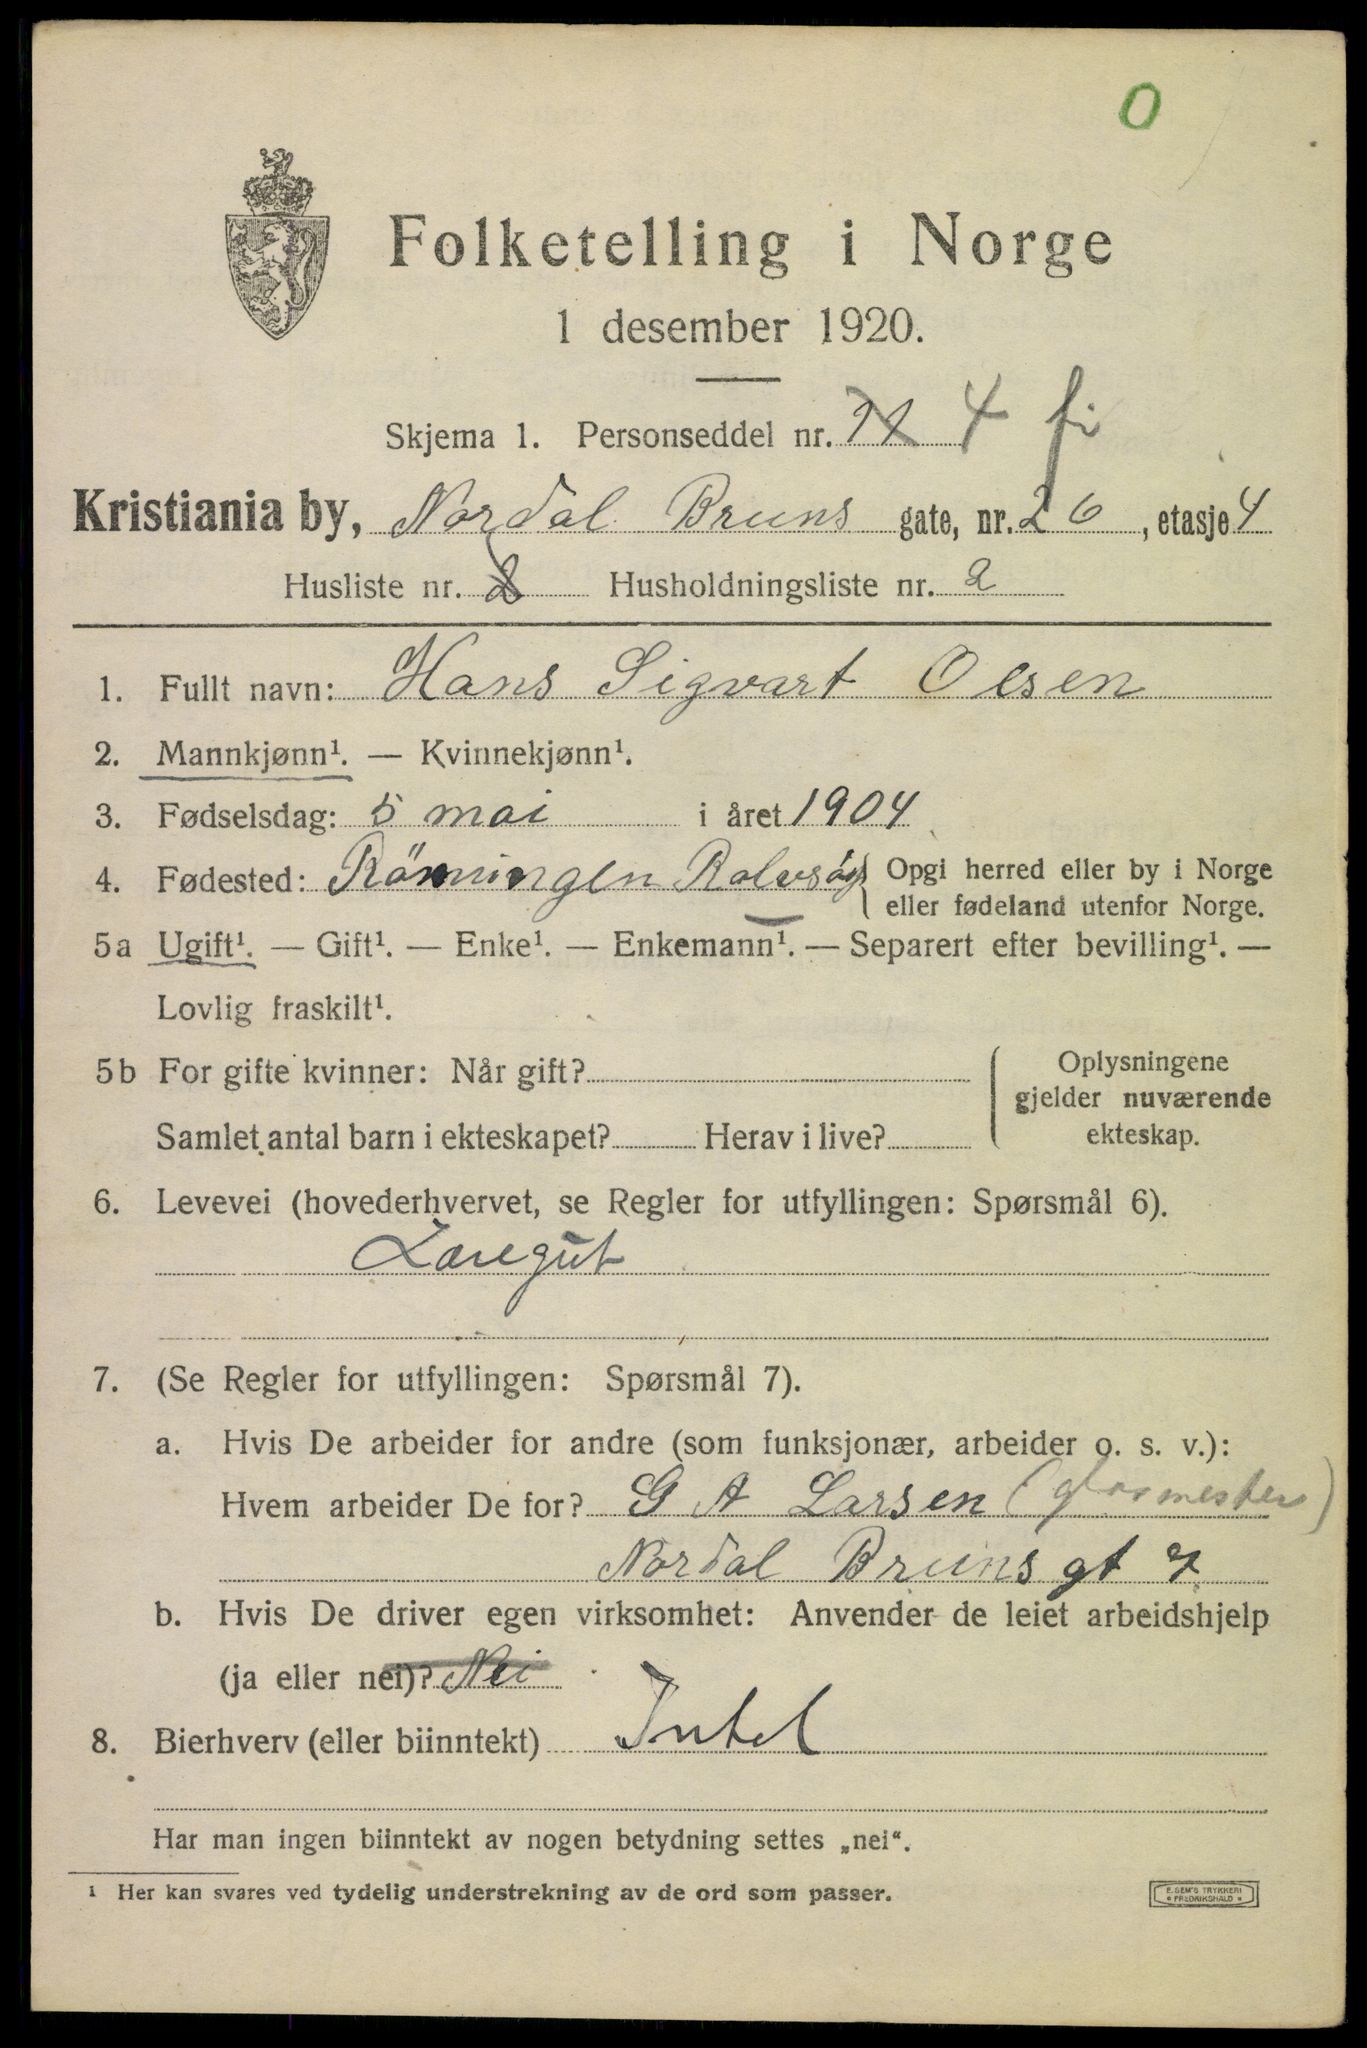 O
Folketelling i Norge
1 desember 1920.
Skjema 1. Personseddel nr. 11 4 fi
Kristiania by, Nordal Bruns gate, nr. 26, etasje 4
Husliste nr. 2 Husholdningsliste nr. 2
1. Fullt navn: Hans Sigvart Olsen
2. Mannkjønn¹. — Kvinnekjønn¹.
3. Fødselsdag: 5 mai i året 1904
4. Fødested: Rönningen Rolvsöy { Opgi herred eller by i Norge
eller fødeland utenfor Norge.
5a Ugift¹. — Gift¹. — Enke¹. — Enkemann¹. — Separert efter bevilling¹. —
Lovlig fraskilt¹.
5b For gifte kvinner: Når gift? { Oplysningene
gjelder nuværende
Samlet antal barn i ekteskapet? Herav i live? ekteskap.
6. Levevei (hovederhvervet, se Regler for utfyllingen: Spørsmål 6).
Læregut
7. (Se Regler for utfyllingen: Spørsmål 7).
a. Hvis De arbeider for andre (som funksjonær, arbeider o. s. v.):
Hvem arbeider De for? G A Larsen (glasmester)
Nordal Bruns gt
b. Hvis De driver egen virksomhet: Anvender de leiet arbeidshjelp
(ja eller nei)? Nei
8. Bierhverv (eller biinntekt) Intet
Har man ingen biinntekt av nogen betydning settes „nei“.
¹ Her kan svares ved tydelig understrekning av de ord som passer.
E. SEM'S TRYKKERI
FREDRIKSHALD